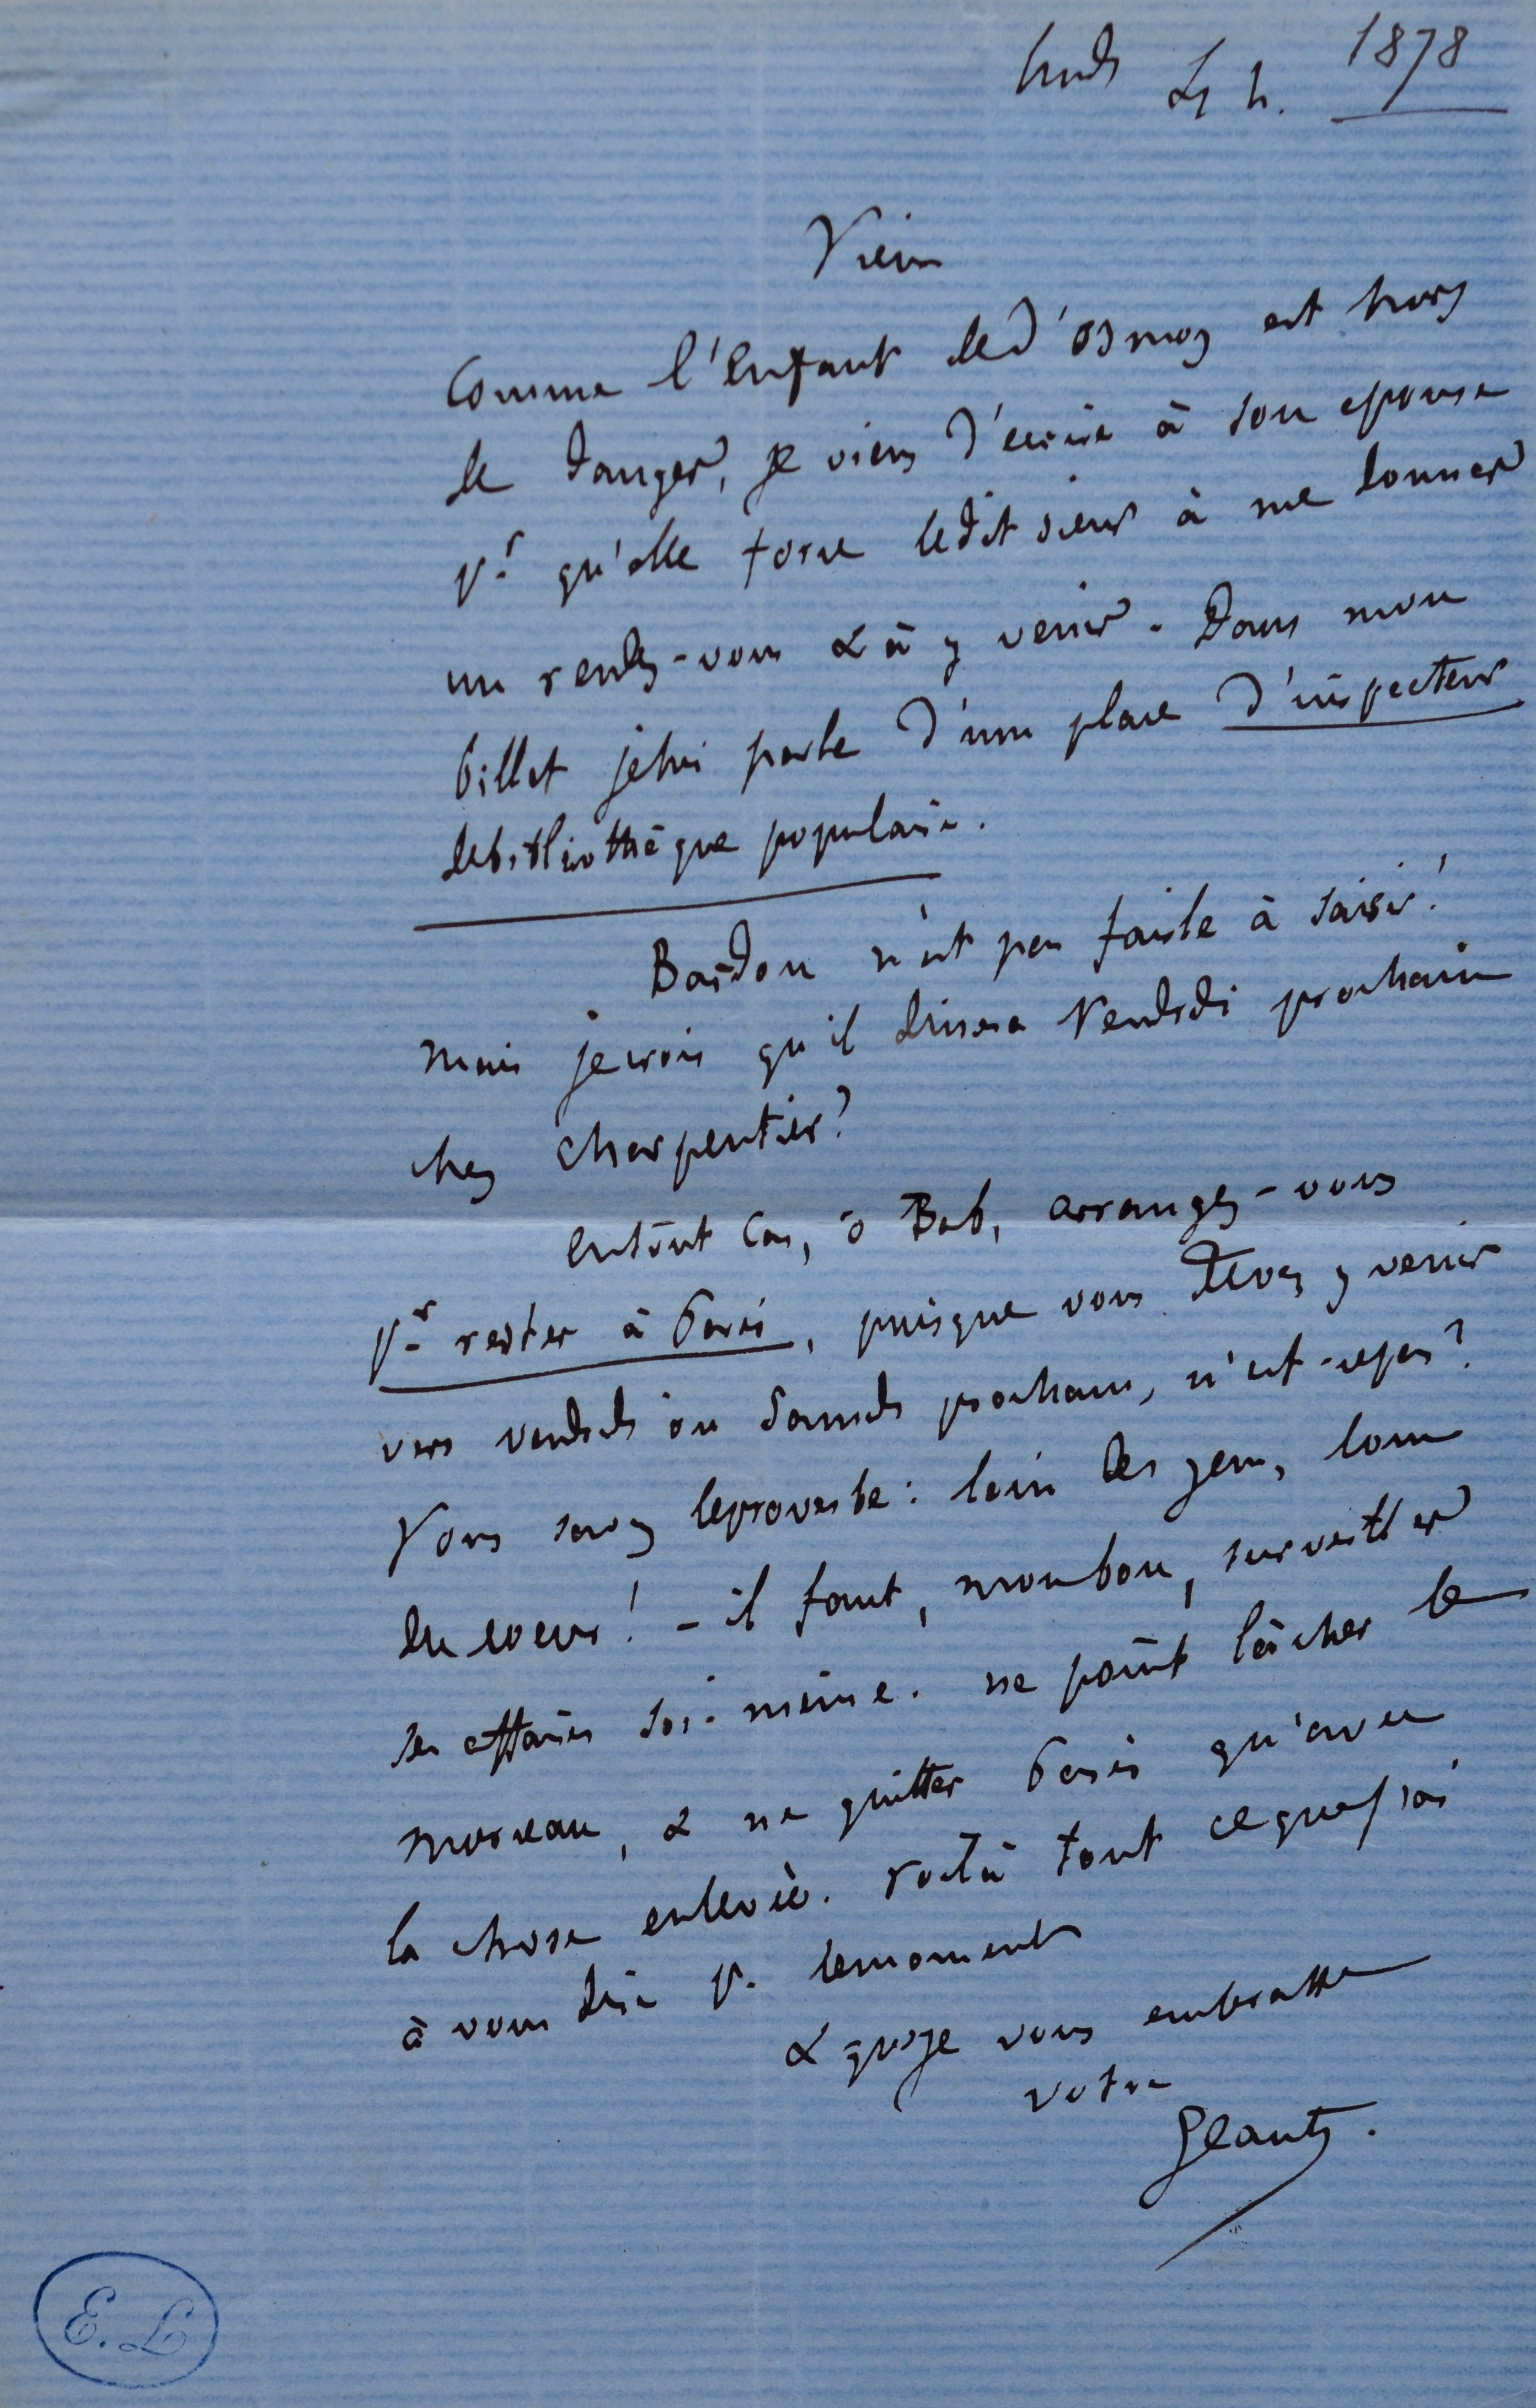 Lundi 4 h. 1878
Vieux
Comme l'enfant de d'osmoy est hors
de danger, je viens d'ecrire à son epouse
pr qu'elle force ledit sieur à me donner
un rendez-vous & à y venir. Dans mon
billet je lui parle d'une place d'inspecteur
de bibliothèque populaire.
Bardou n'est pas facile à saisir!
mais je crois qu'il dinera Vendredi prochain
chez Charpentier?
en tout cas, ô Bab, arrangez-vous
pr rester à Paris, puisque vous devez y venir
vers vendredi ou Samedi prochain, n'est-ce pas?
Vous savez le proverbe: loin des yeux, loin
du coeur! - il faut, mon bon, surveiller
ses affaires soi-même. ne point lâcher le
morceau, & ne quitter Paris qu'avec
la chose enlevée. Voilà tout ce que j'ai
à vous dire p. le moment
& que je vous embrasse
votre
Geant.
E. L